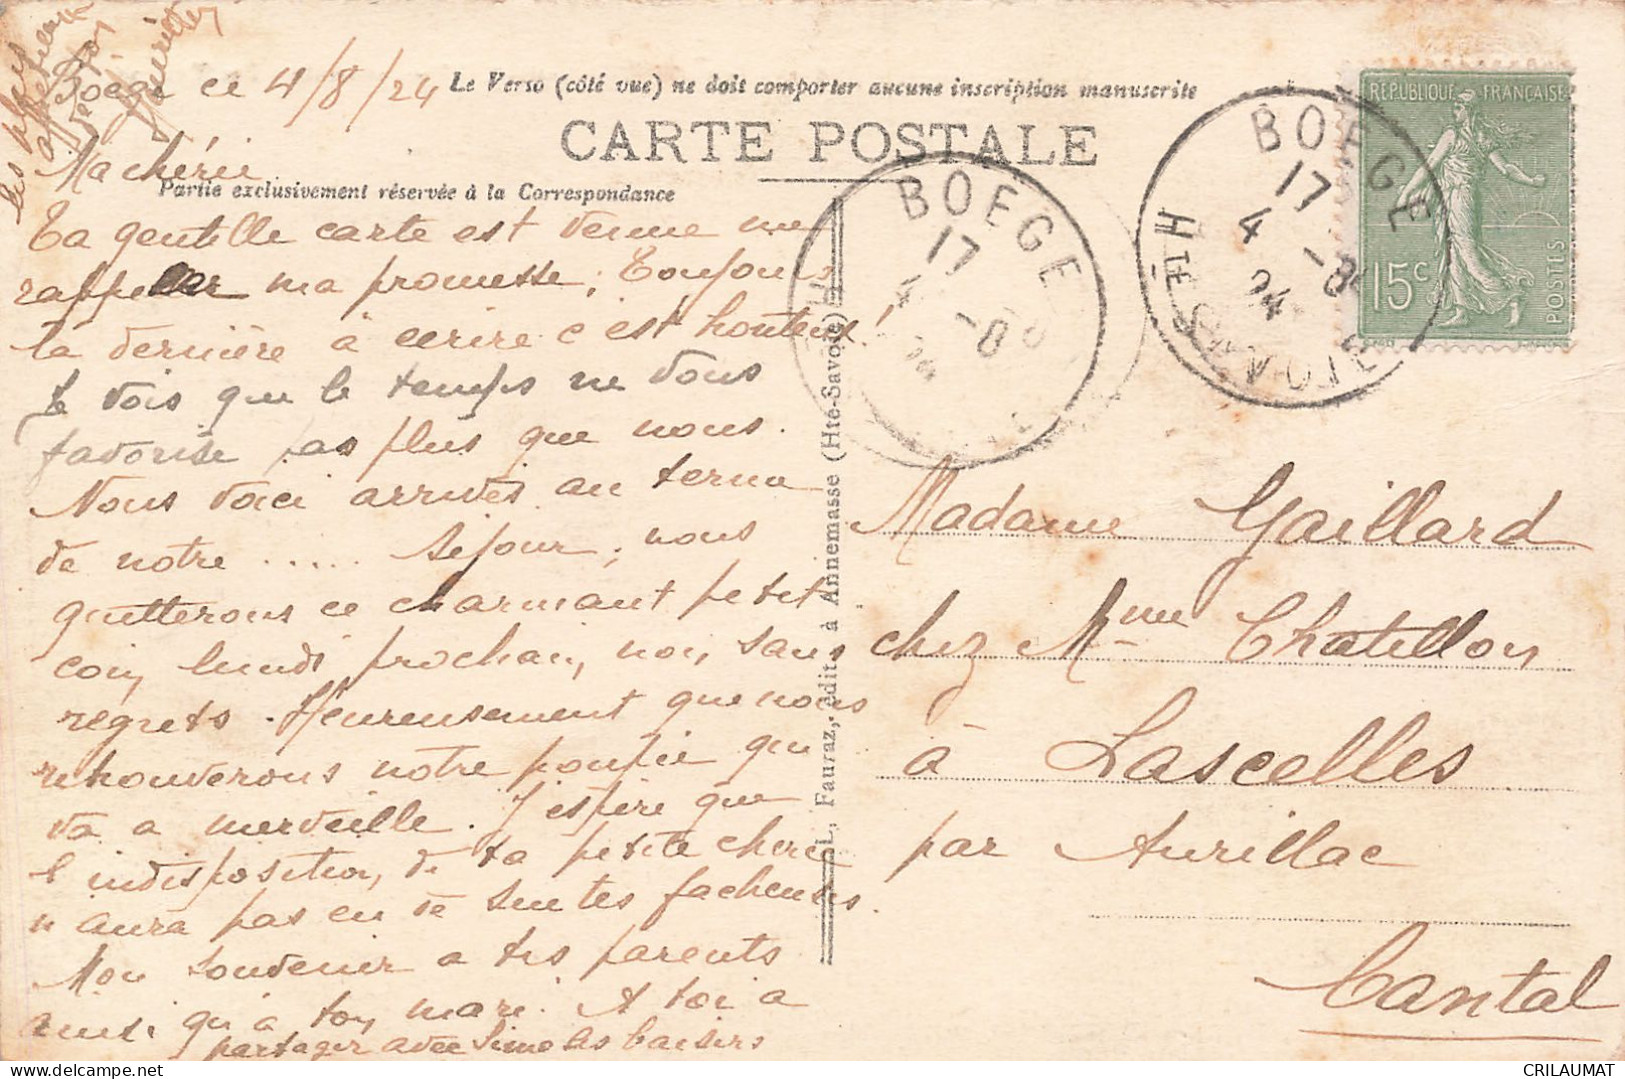 Boege ce 4/8/24
Le Verso (côté vue) ne doit comporter aucune inscription manuscrite
CARTE POSTALE
Ma chérie
Partie exclusivement réservée à la Correspondance
Ta gentille carte est venue me
rappeler ma promesse; Toujours
la dernière à ecrire c'est honteux!
Je vois que le temps ne vous
favorise pas plus que nous.
Nous voici arrivés au terme
de notre ..... séjour, nous
quitterons ce charmant petit
coin lundi prochain, non sans
regrets. Heureusement que nous
retrouverons notre poupée qui
va a merveille. J'espère que
l'indisposition de ta petite chérie
n'aura pas eu de suites facheuses.
Mon souvenir a tes parents
ainsi qu'à ton mari. A toi a
partager avec Simone les baisers
les plus
affectueux
de ton
BOEGE
17
4 -8
24
HTE SAVOIE
BOEGE
17
4 -8
24
REPUBLIQUE FRANÇAISE
15c
POSTES
L. Fauraz, édit. à Annemasse (Hte-Savoie)
Madame Gaillard
chez Mme Chatillon
à Lascelles
par Aurillac
Cantal
CRILAUMAT